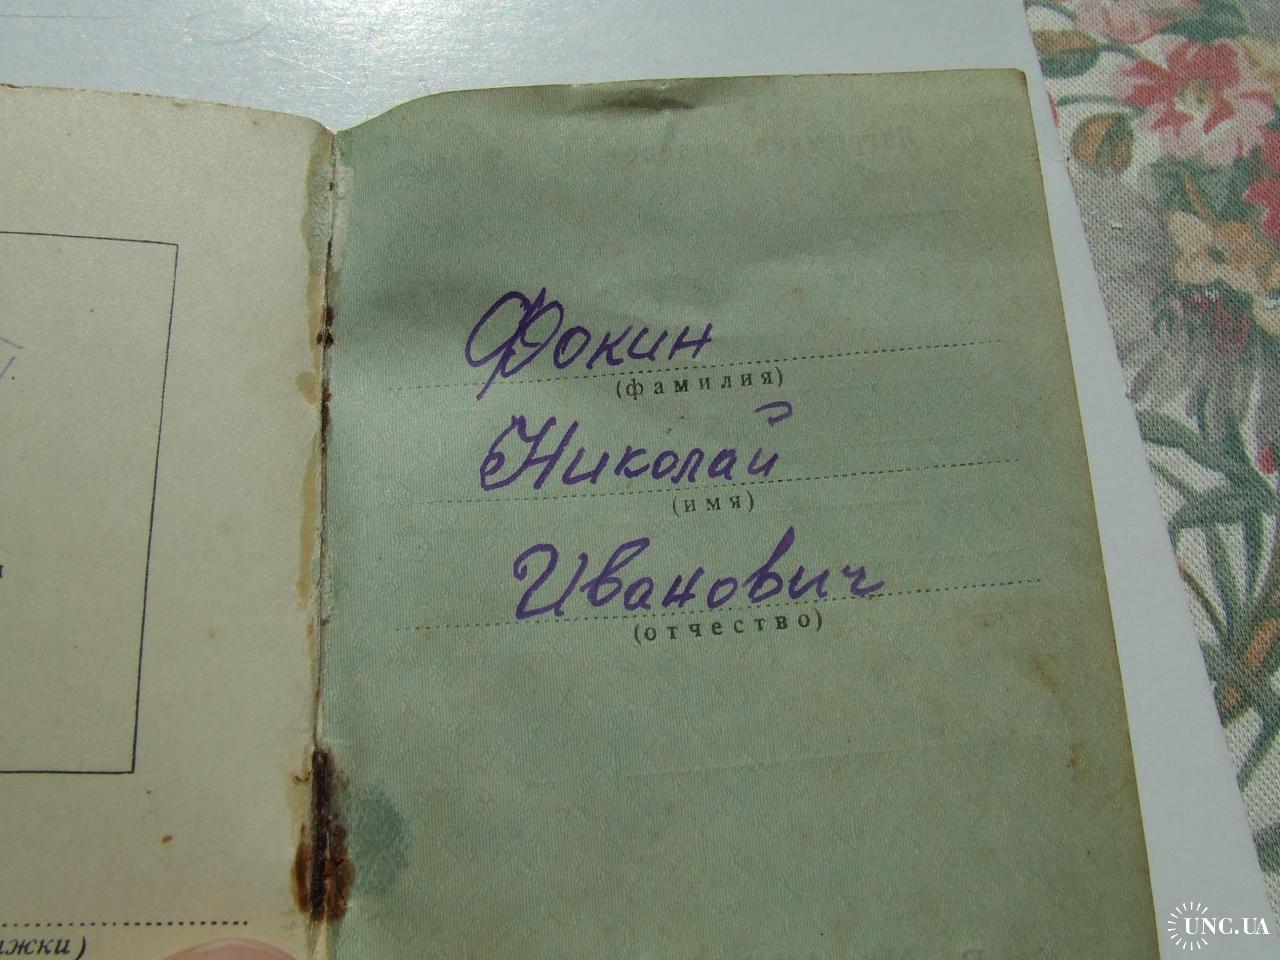 Фокин
(фамилия)
Николай
(имя)
Иванович
(отчество)
UNC.UA